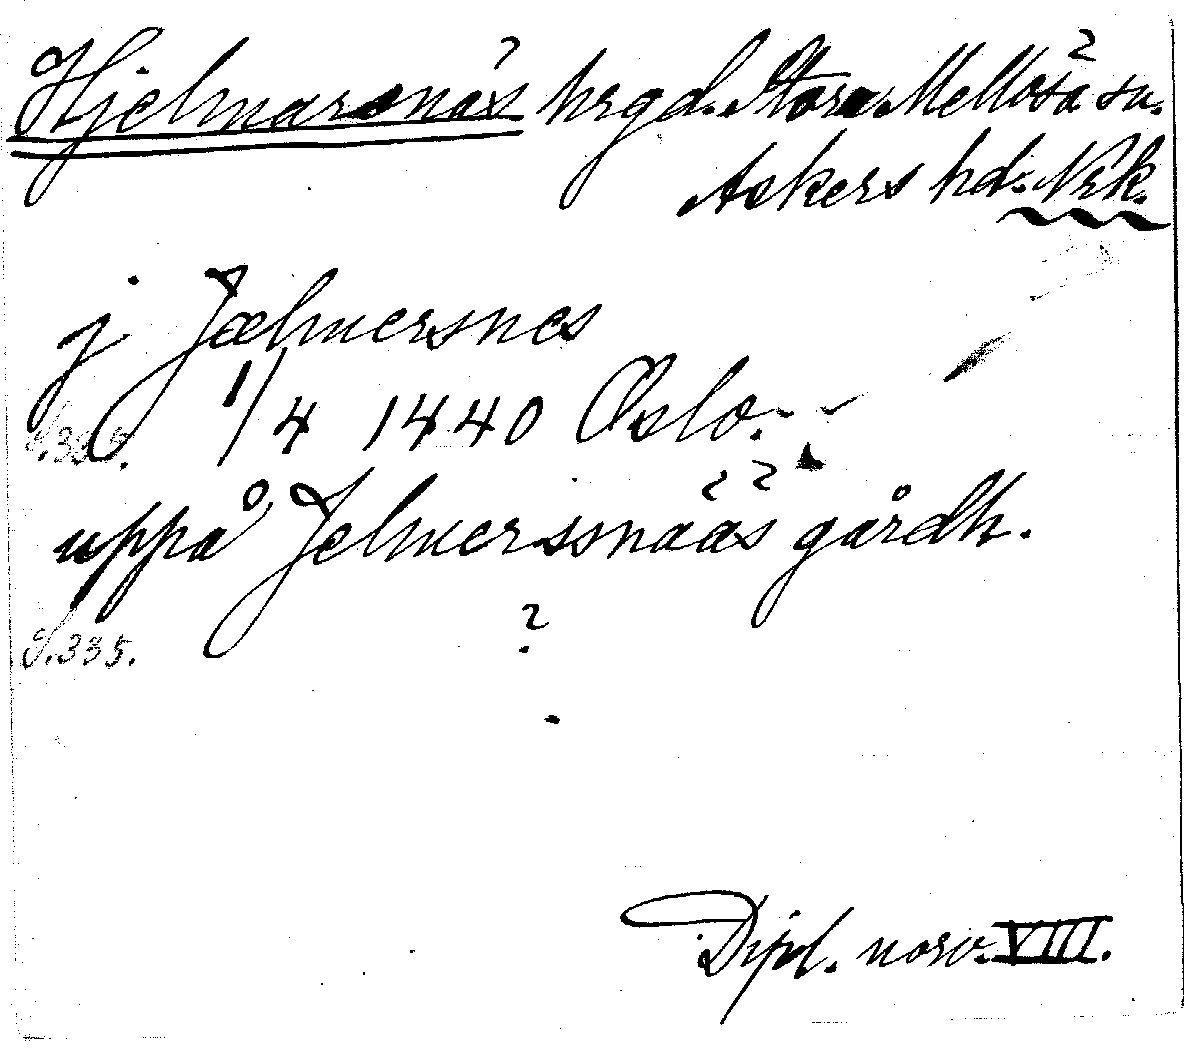 Hjelmarsnäs hrgd. Stora Mellösa sn.
Askers hd. Nrk.
j Jælmersnes
1/4 1440 Oslo.
S. 335.
uppå Jelmerssnääs gårdh.
S. 335.
?
Dipl. norv. VIII.